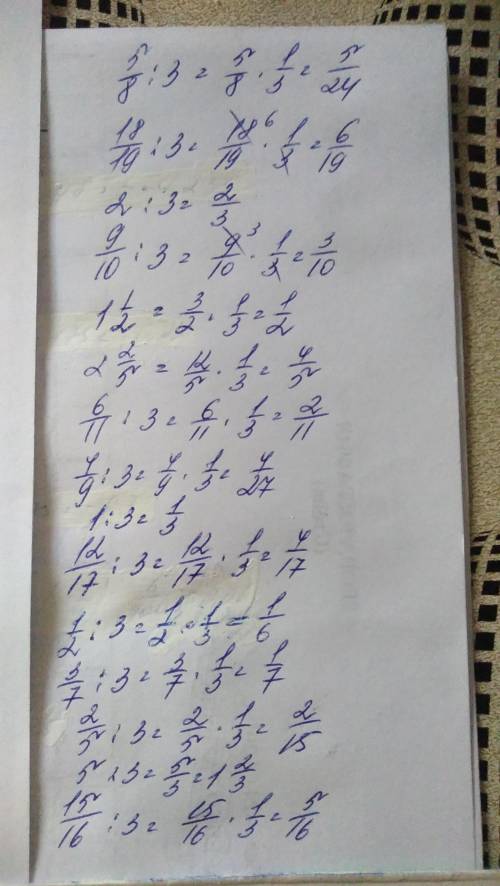 5/8 : 3 = 5/8 · 1/3 = 5/24
18/19 : 3 = 18/19 6 · 1/3 = 6/19
2 : 3 = 2/3
9/10 : 3 = 9/10 3 · 1/3 = 3/10
1 1/2 = 3/2 · 1/3 = 1/2
2 2/5 = 12/5 · 1/3 = 4/5
6/11 : 3 = 6/11 · 1/3 = 2/11
4/9 : 3 = 4/9 · 1/3 = 4/27
1 : 3 = 1/3
12/17 : 3 = 12/17 · 1/3 = 4/17
1/2 : 3 = 1/2 · 1/3 = 1/6
3/7 : 3 = 3/7 · 1/3 = 1/7
2/5 : 3 = 2/5 · 1/3 = 2/15
5 : 3 = 5/3 = 1 2/3
15/16 : 3 = 15/16 · 1/3 = 5/16